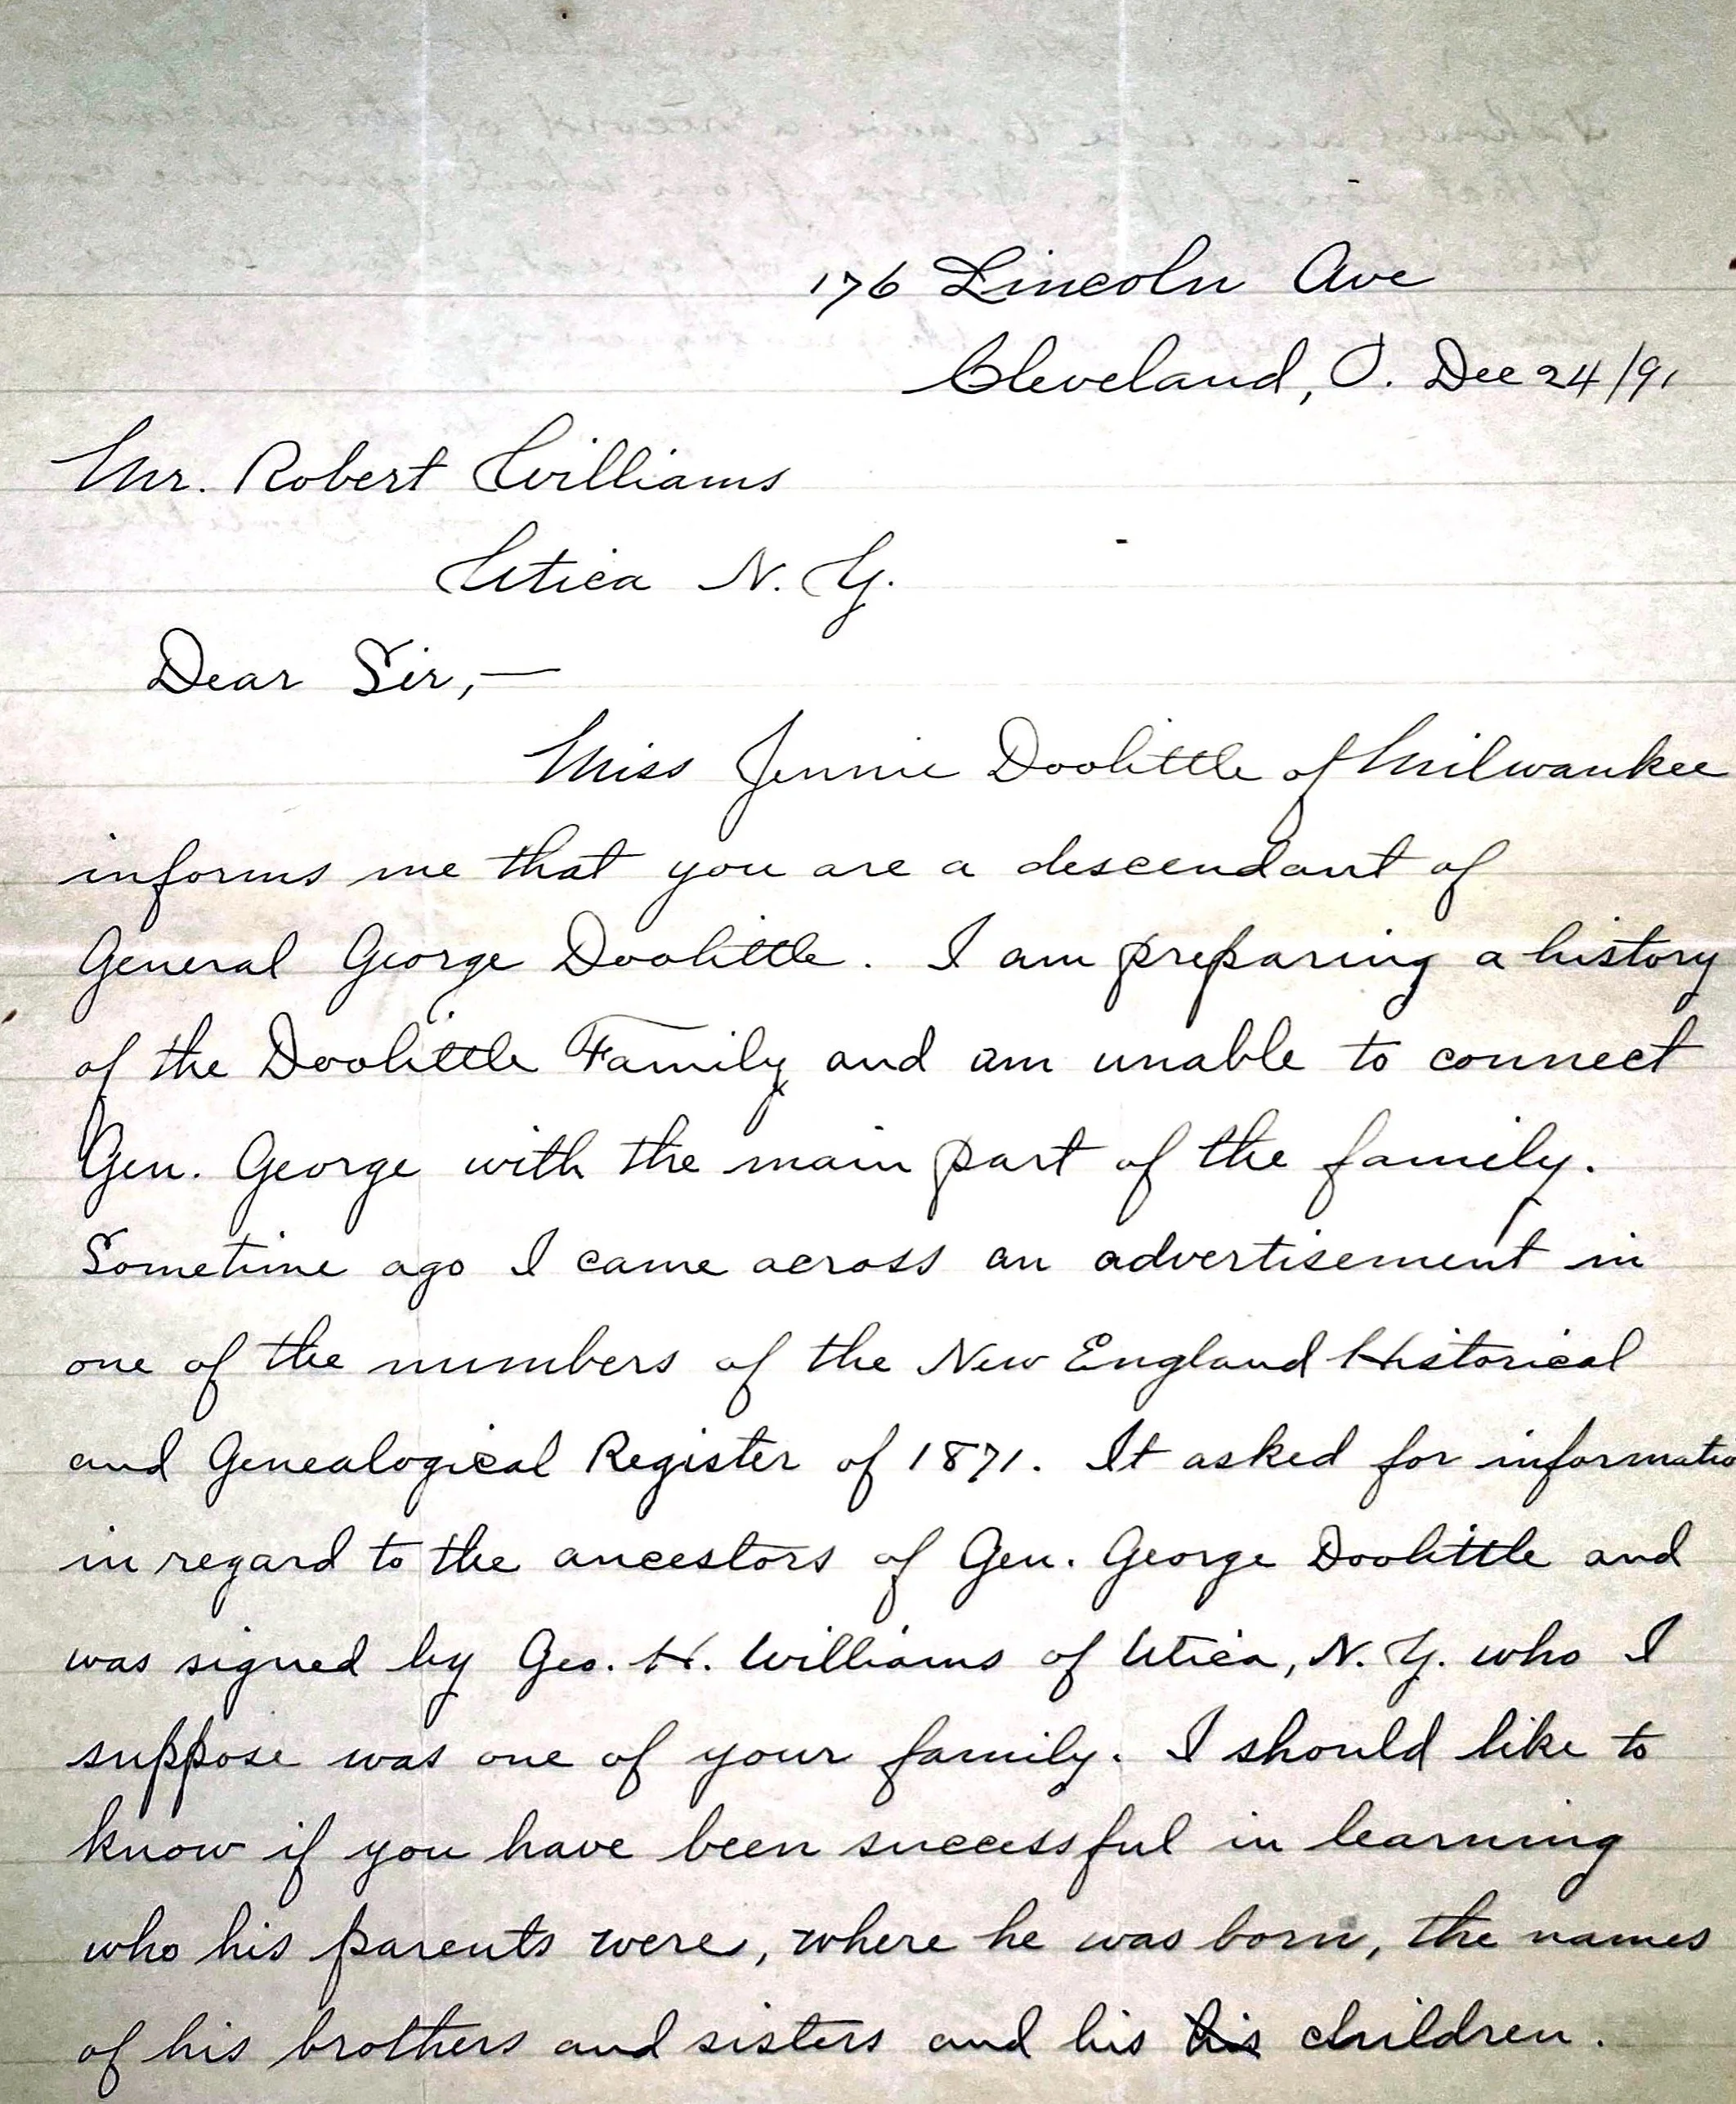 176 Lincoln Ave
Cleveland, O. Dec 24/91
Mr. Robert Williams
Utica N. Y.
Dear Sir,—
Miss Jennie Doolittle of Milwaukee
informs me that you are a descendant of
General George Doolittle. I am preparing a history
of the Doolittle Family and am unable to connect
Gen. George with the main part of the family.
Sometime ago I came across an advertisement in
one of the numbers of the New England Historical
and Genealogical Register of 1871. It asked for informatio
in regard to the ancestors of Gen. George Doolittle and
was signed by Geo. H. Williams of Utica, N. Y. who I
suppose was one of your family. I should like to
know if you have been successful in learning
who his parents were, where he was born, the names
of his brothers and sisters and his his children.